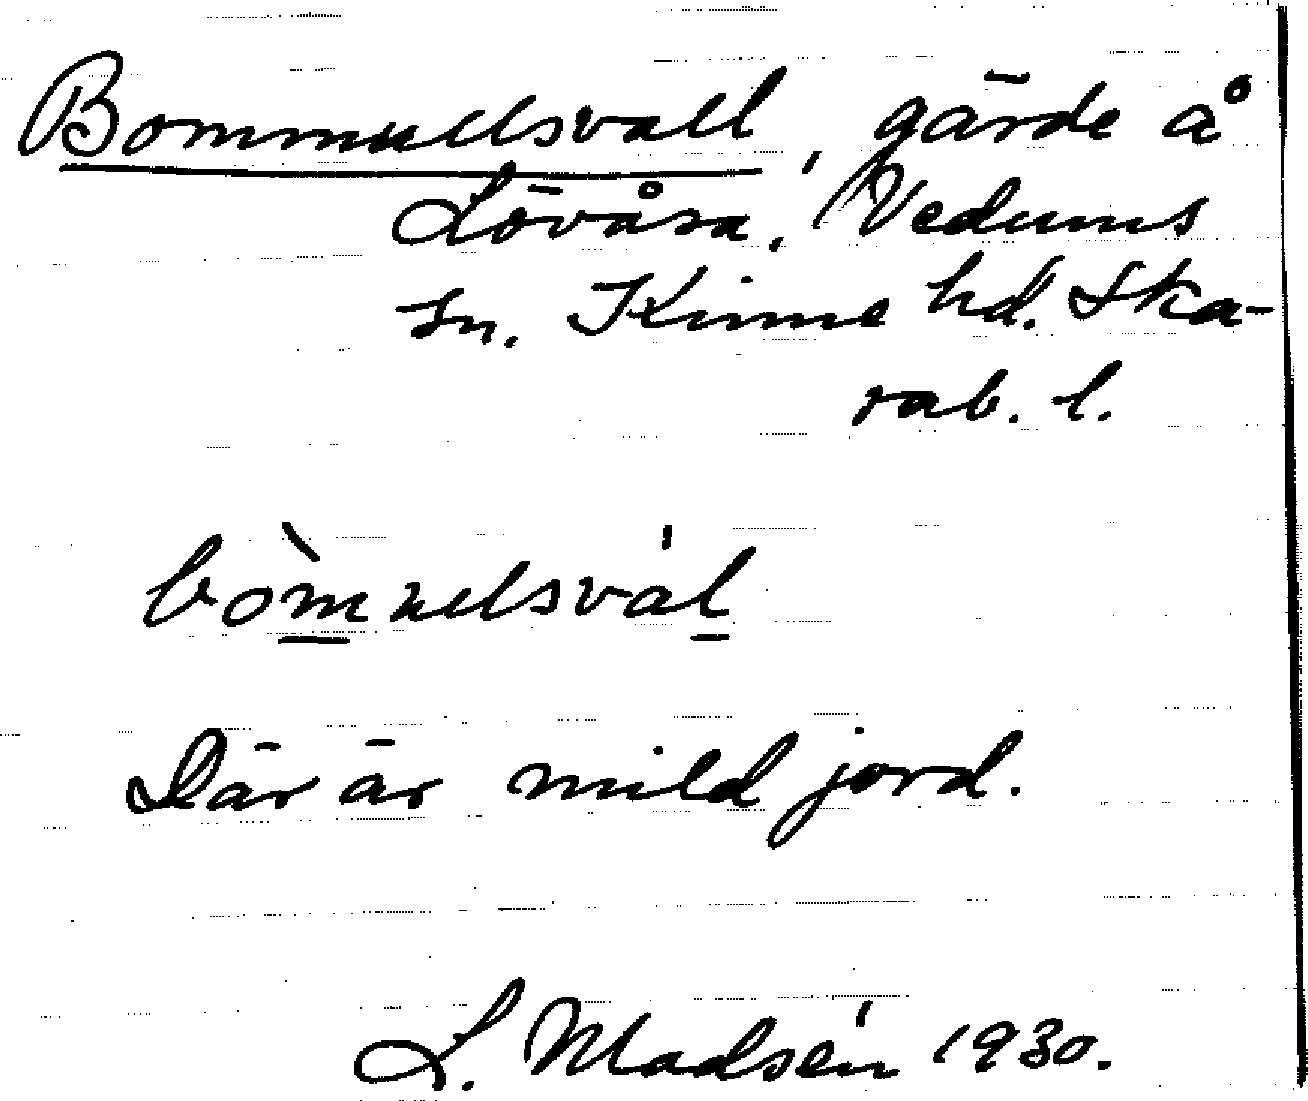 Bommullsvall, gärde å
Lövåsa, Vedums
sn. Kinne hd. Ska-
rab. l.
bòmulsvál
Där är mild jord.
L. Madsén 1930.